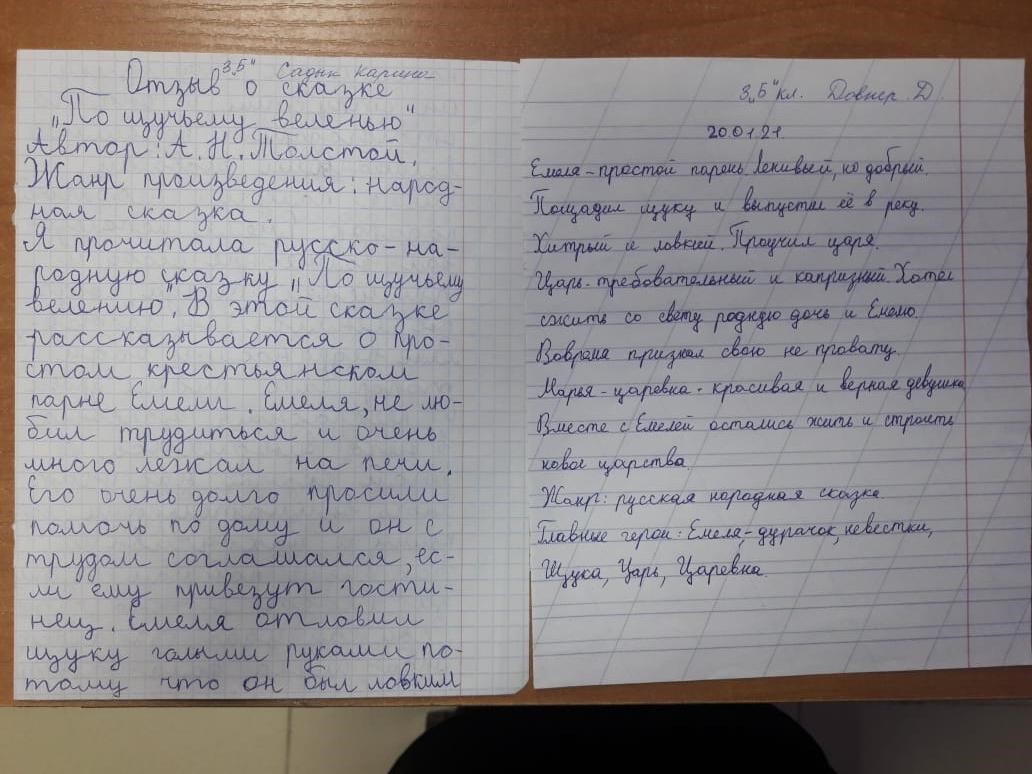 3„Б" Садык Карина
Отзыв о сказке
„По щучьему веленью"
Автор: А. Н. Толстой.
Жанр произведения: народ-
ная сказка.
Я прочитала русско-на-
родную сказку „По щучьему
велению". В этой сказке
рассказывается о про-
стом крестьянском
парне Емели. Емеля, не лю-
бил трудиться и очень
много лежал на печи.
Его очень долго просили
помочь по дому и он с
трудом соглашался, ес-
ли ему привезут гости-
нец. Емеля отловил
щуку голыми руками по-
тому что он был ловким
3„Б" кл. Довнер. Д.
200121
Емеля-простой парень. Ленивый, но добрый.
Пощадил щуку и выпустил её в реку.
Хитрый и ловкий. Проучил царя.
Царь-требовательный и капризный. Хотел
сжить со свету родную дочь и Емелю.
Вовремя признал свою не правату.
Марья-царевна-красивая и верная девушка
Вместе с Емелей остались жить и строить
новое царства.
Жанр: русская народная сказка.
Главные герои: Емеля,-дурачок, невестки,
Щука, Царь, Царевна.